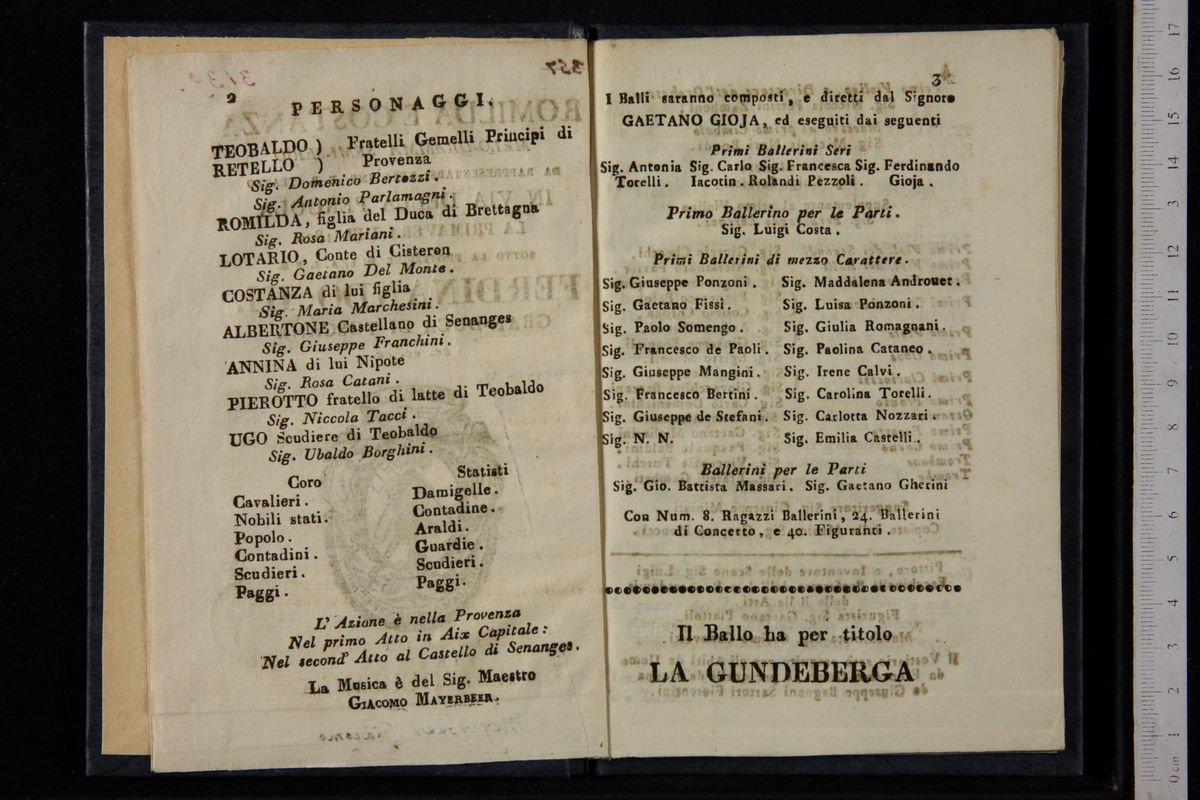 2
PERSONAGGI.
TEOBALDO ) Fratelli Gemelli Principi di
RETELLO ) Provenza
Sig. Domenico Bertozzi.
Sig. Antonio Parlamagni.
ROMILDA, figlia del Duca di Brettagna
Sig. Rosa Mariani.
LOTARIO, Conte di Cisteron
Sig. Gaetano Del Monte.
COSTANZA di lui figlia
Sig. Maria Marchesini.
ALBERTONE Castellano di Senanges
Sig. Giuseppe Franchini.
ANNINA di lui Nipote
Sig. Rosa Catani.
PIEROTTO fratello di latte di Teobaldo
Sig. Niccola Tacci.
UGO Scudiere di Teobaldo
Sig. Ubaldo Borghini.
Coro
Cavalieri.
Nobili stati.
Popolo.
Contadini.
Scudieri.
Paggi.
Statisti
Damigelle.
Contadine.
Araldi.
Guardie.
Scudieri.
Paggi.
L' Azione è nella Provenza
Nel primo Atto in Aix Capitale:
Nel second' Atto al Castello di Senanges.
La Musica è del Sig. Maestro
GIACOMO MAYERBEER.
3
I Balli saranno composti, e diretti dal Signore
GAETANO GIOJA, ed eseguiti dai seguenti
Primi Ballerini Seri
Sig. Antonia Sig. Carlo Sig. Francesca Sig. Ferdinando
Torelli. Iacotin. Rolandi Pezzoli. Gioja.
Primo Ballerino per le Parti.
Sig. Luigi Costa.
Primi Ballerini di mezzo Carattere.
Sig. Giuseppe Ponzoni. Sig. Maddalena Androuet.
Sig. Gaetano Fissi. Sig. Luisa Ponzoni.
Sig. Paolo Somengo. Sig. Giulia Romagnani.
Sig. Francesco de Paoli. Sig. Paolina Cataneo.
Sig. Giuseppe Mangini. Sig. Irene Calvi.
Sig. Francesco Bertini. Sig. Carolina Torelli.
Sig. Giuseppe de Stefani. Sig. Carlotta Nozzari.
Sig. N. N. Sig. Emilia Castelli.
Ballerini per le Parti
Sig. Gio. Battista Massari. Sig. Gaetano Gherini
Con Num. 8. Ragazzi Ballerini, 24. Ballerini
di Concerto, e 40. Figuranti.
Il Ballo ha per titolo
LA GUNDEBERGA
0 cm 1 2 3 4 5 6 7 8 9 10 11 12 13 14 15 16 17